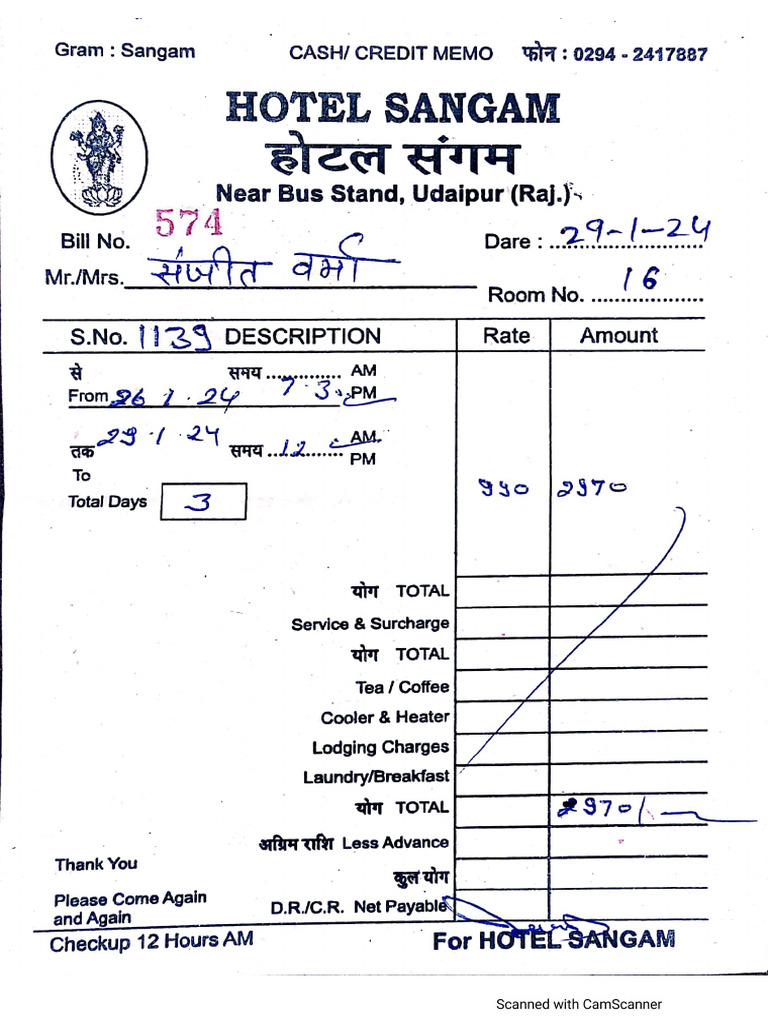 Gram : Sangam CASH/ CREDIT MEMO फोन : 0294 - 2417887
HOTEL SANGAM
होटल संगम
Near Bus Stand, Udaipur (Raj.)
Bill No. 574 Dare : 29-1-24
Mr./Mrs. संजीत वर्मा
Room No. 16
S.No. 1139 DESCRIPTION Rate Amount
से समय .............. AM
From 26.1.24 7.3. PM
तक 29.1.24 समय ...12......... AM
PM
To
990 2970
Total Days 3
योग TOTAL
Service & Surcharge
योग TOTAL
Tea / Coffee
Cooler & Heater
Lodging Charges
Laundry/Breakfast
योग TOTAL 2970/-
अग्रिम राशि Less Advance
Thank You
कुल योग
Please Come Again
and Again
D.R./C.R. Net Payable
Checkup 12 Hours AM For HOTEL SANGAM
Scanned with CamScanner